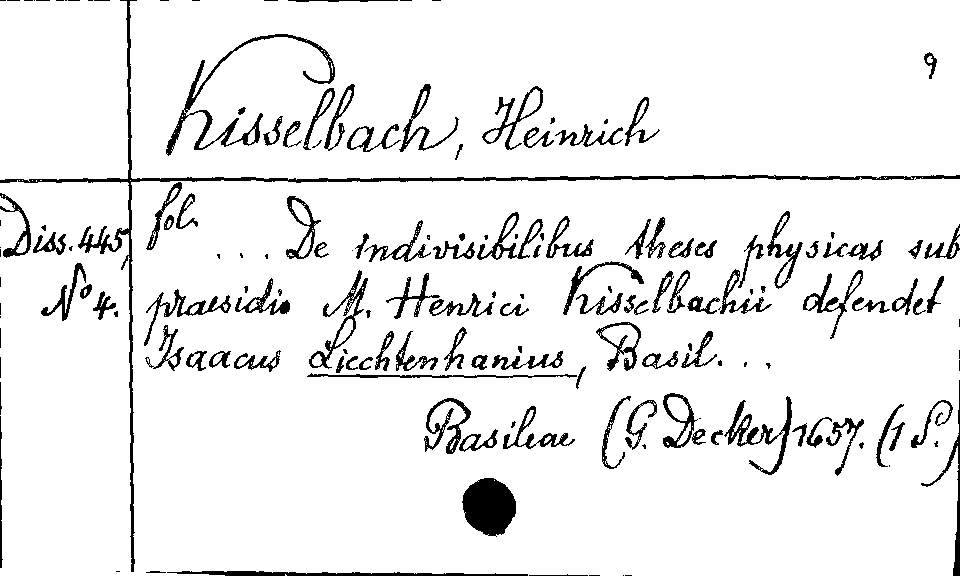 9
Kisselbach, Heinrich
Diss. 445, fol. ... De indivisibilibus theses physicas sub
No 4. praesidio M. Henrici Kisselbachii defendet
Isaacus Liechtenhanius, Basil. ...
Basileae (G. Decker) 1657. (1 S.)